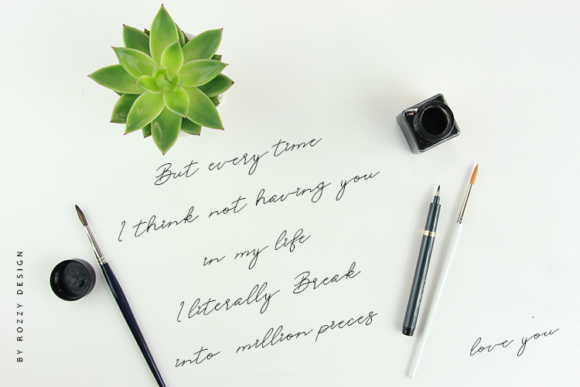 But every time
I think not having you
in my life
I literally Break
into million pieces
love you
BY ROZZY DESIGN